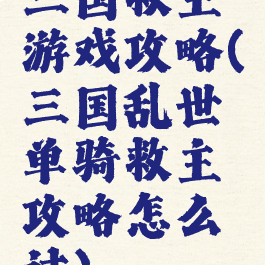 三国救主
游戏攻略(
三国乱世
单骑救主
攻略怎么